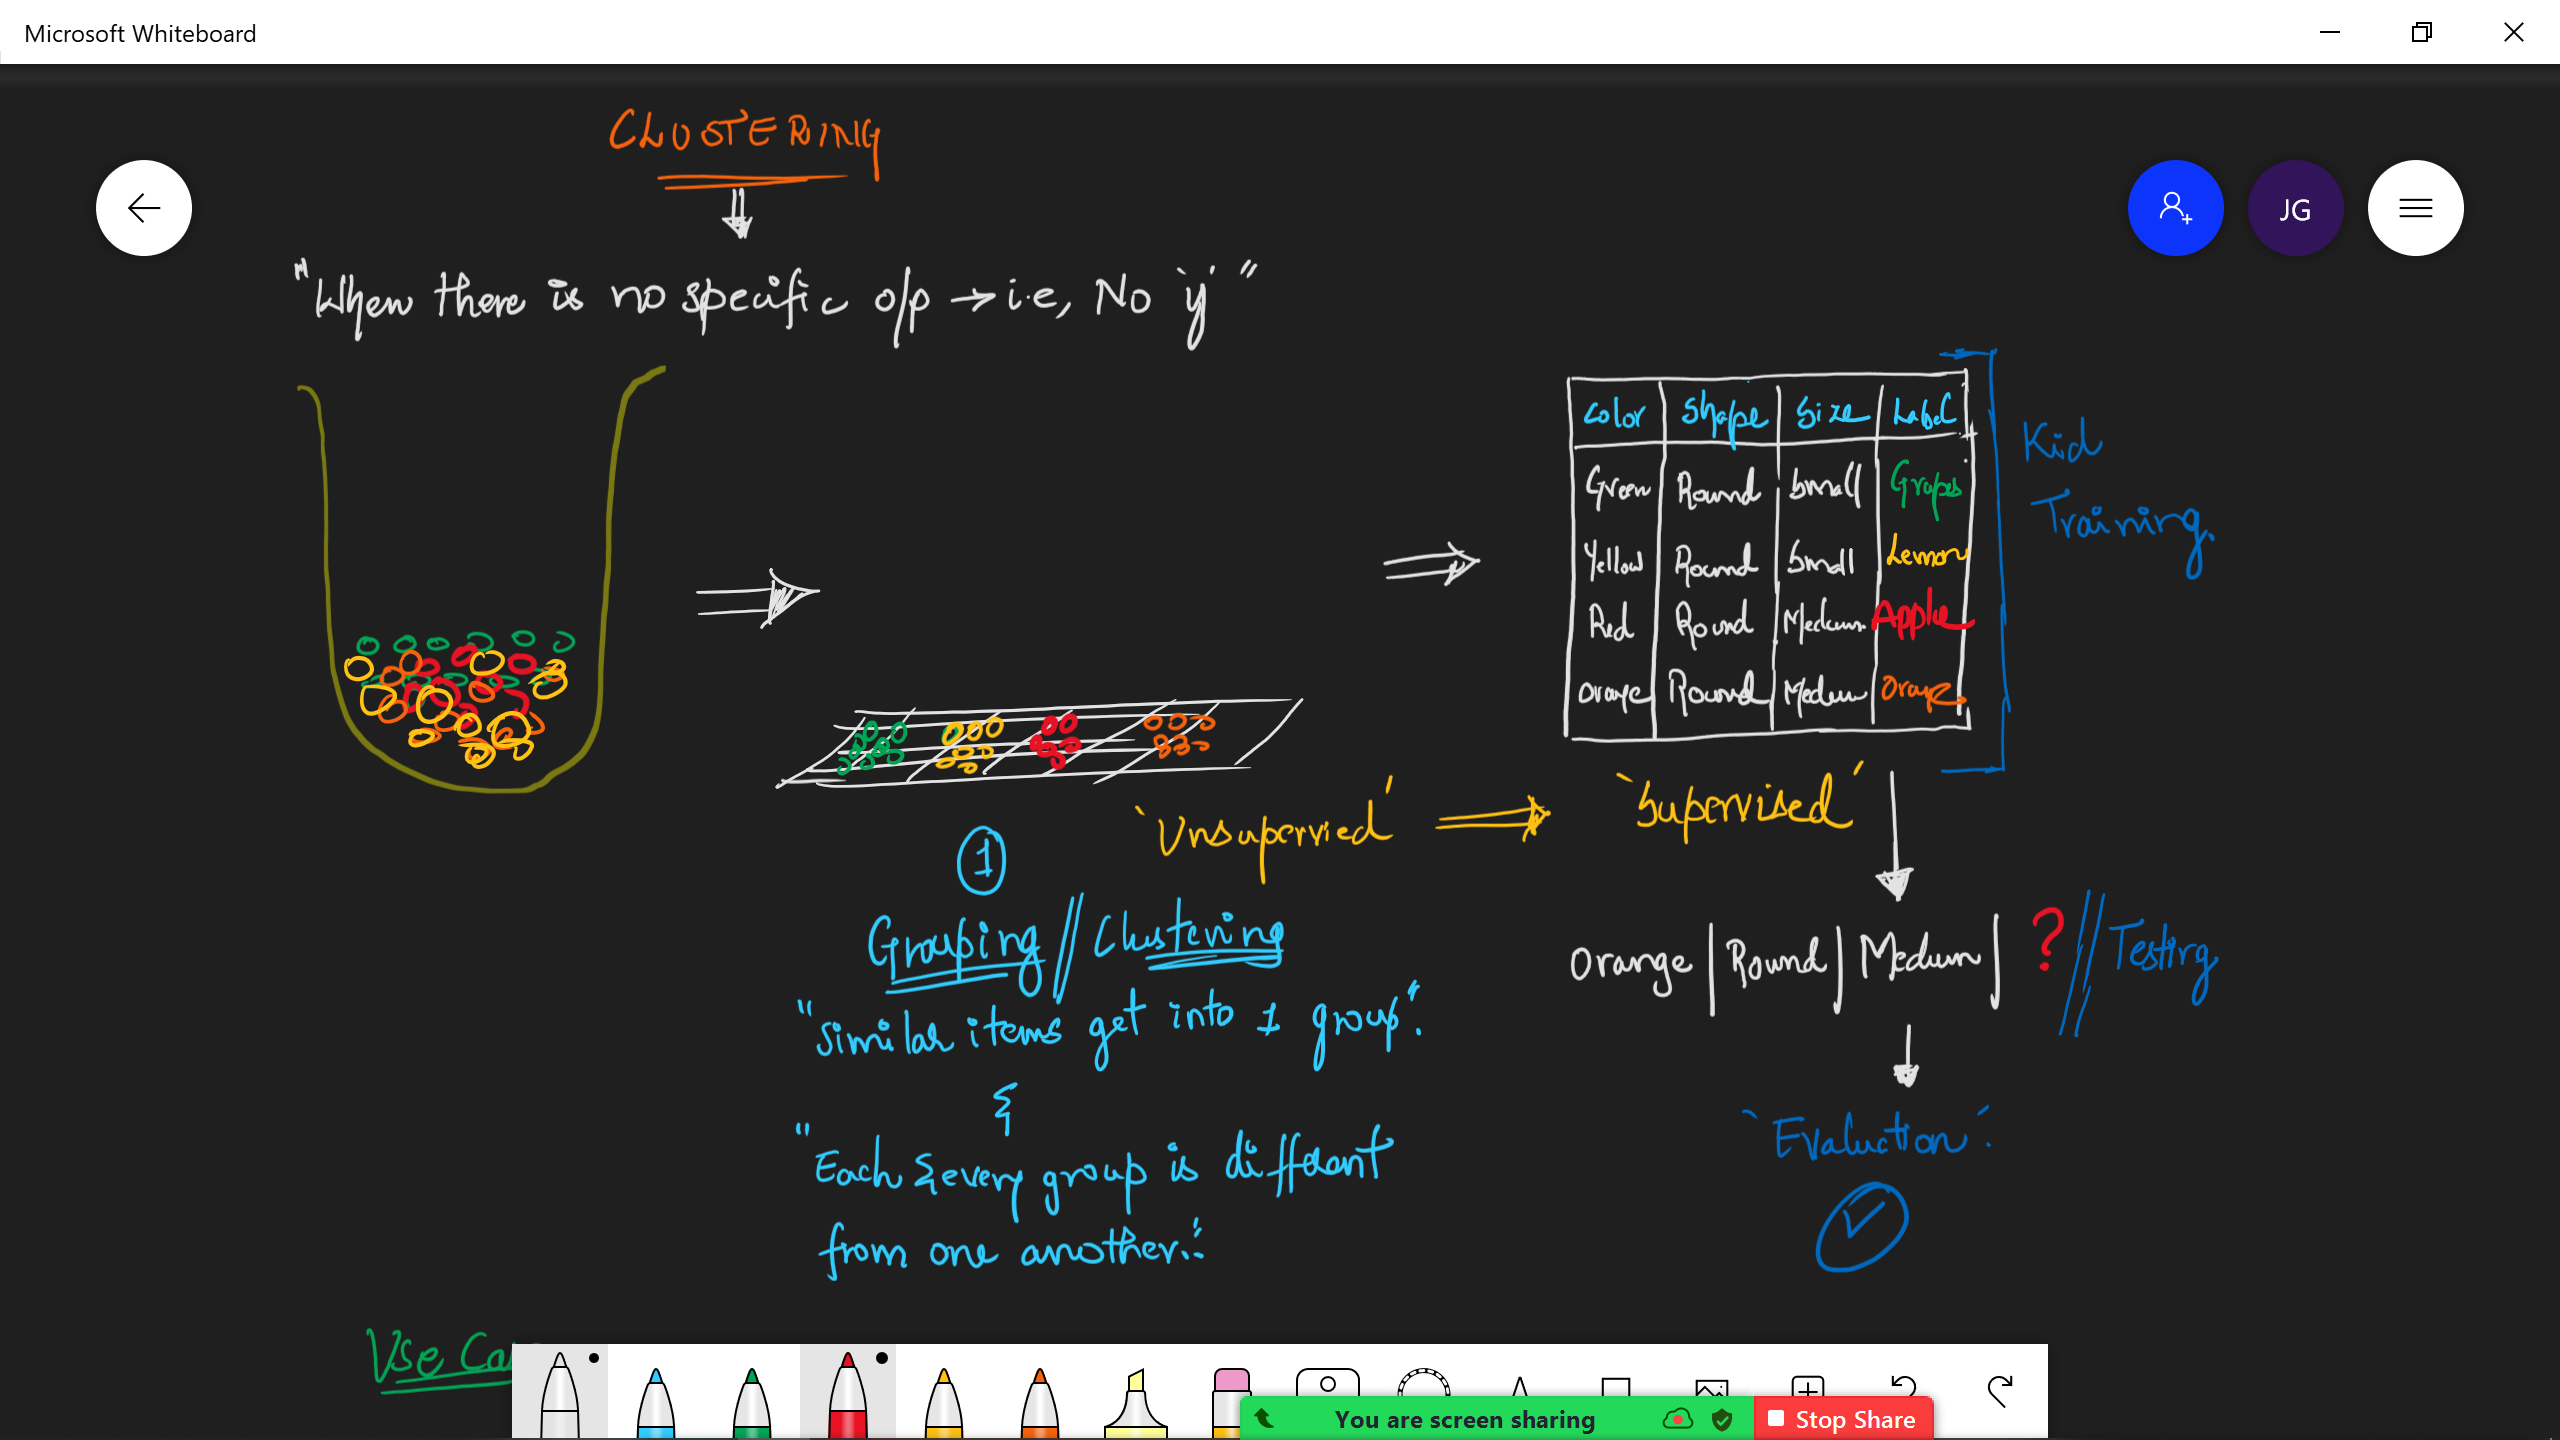 Microsoft Whiteboard
CLUSTERING
JG
"When there is no specific o/p → i.e, No `y' "
Color Shape Size Label
Green Round Small Grapes
Yellow Round Small Lemon
Red Round Medium Apple
Orange Round Medium Orange
Kid
Training.
`Unsupervied' ⇒ `Supervised'
1
Grouping // Clustering
"Similar items get into 1 group".
&
"Each & every group is different
from one another."
Orange | Round | Medium | ? // Testing
`Evaluation'.
Use Cas
You are screen sharing
Stop Share